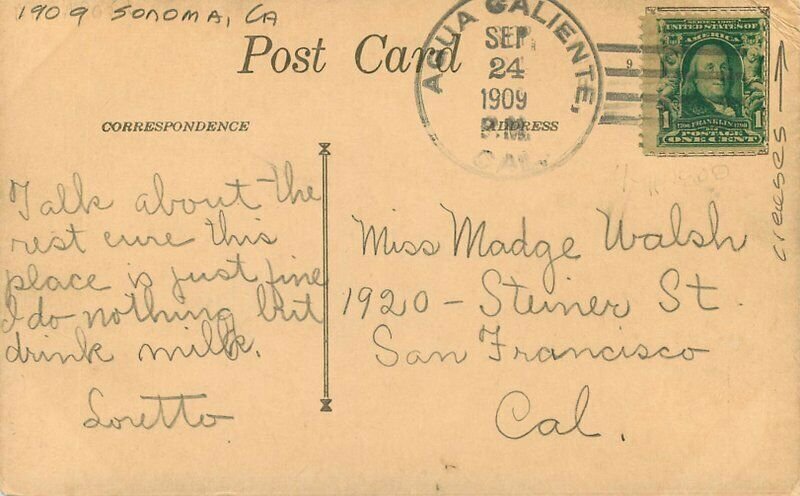 1909 SONOMA, CA
Post Card
AGUA CALIENTE,
SEP
24
1909
P.M.
CAL.
9
SERIES 1902
UNITED STATES OF
AMERICA
1706 FRANKLIN 1790
1 POSTAGE 1
ONE CENT
creases
CORRESPONDENCE
ADDRESS
Talk about the
rest cure this
place is just fine
I do nothing but
drink milk.
Loretto
Miss Madge Walsh
1920 - Steiner St.
San Francisco
Cal.